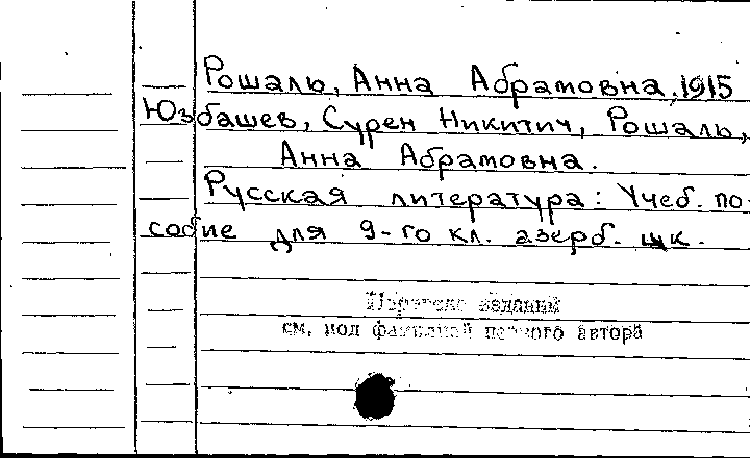 Рошаль, Анна Абрамовна, 1915
Юзбашев, Сурен Никитич, Рошаль,
Анна Абрамовна.
Русская литература: Учеб. по-
собие для 9-го кл. азерб. шк.
Перечень изданий
см. под фамилией первого автора